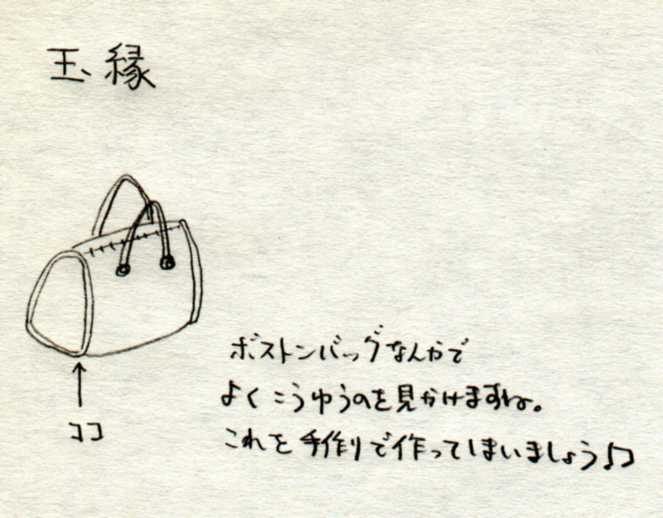 玉縁
ココ
ボストンバッグなんかで
よくこうゆうのを見かけますね。
これを手作りで作ってしまいましょう♫